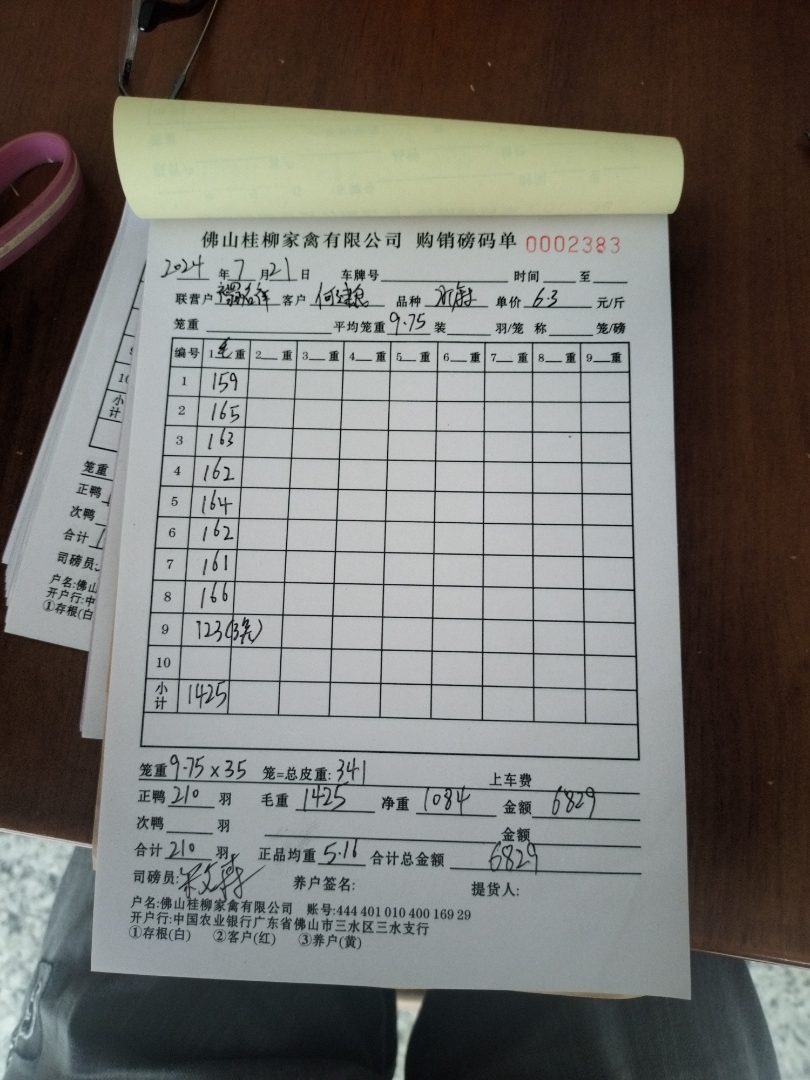 佛山桂柳家禽有限公司 购销磅码单 0002383
2024 年 7 月 21 日 车牌号 时间 至
联营户 客户 何 品种 单价 6.3 元/斤
笼重 平均笼重 9.75 装 羽/笼 称 笼/磅
编号 1 毛 重 2 重 3 重 4 重 5 重 6 重 7 重 8 重 9 重
1 159
2 165
3 163
4 162
5 164
6 162
7 161
8 166
9 123(3笼)
10
小计 1425
笼重 9.75 x 35 笼=总皮重: 341 上车费
正鸭 210 羽 毛重 1425 净重 1084 金额 6829
次鸭 羽 金额
合计 210 羽 正品均重 5.16 合计总金额 6829
司磅员: 养户签名: 提货人:
户名:佛山桂柳家禽有限公司 账号:444 401 010 400 169 29
开户行:中国农业银行广东省佛山市三水区三水支行
①存根(白) ②客户(红) ③养户(黄)
10
小计
笼重
正鸭
次鸭
合计 1
司磅员:
户名:佛山
开户行:中
①存根(白